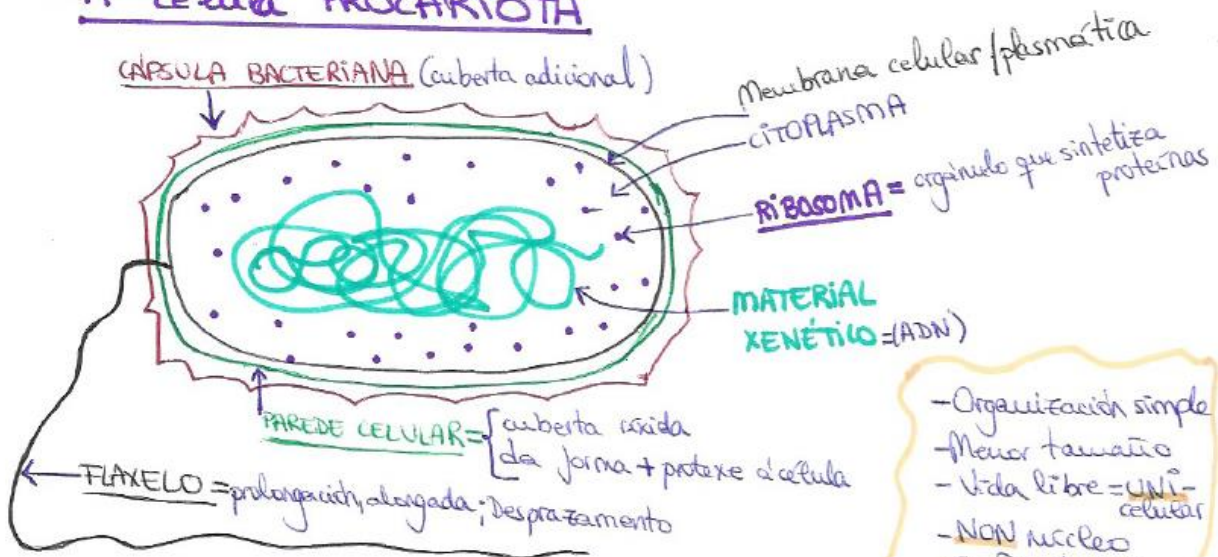 A célula PROCARIOTA
CÁPSULA BACTERIANA (cuberta adicional)
Membrana celular/plasmática
CITOPLASMA
RIBOSOMA = orgánulo que sintetiza
proteínas
MATERIAL
XENÉTICO = (ADN)
PAREDE CELULAR = cuberta ríxida
da forma + protexe á célula
FLAXELO = prolongación, alongada; Desprazamento
- Organización simple
- Menor tamaño
- Vida libre = UNI-
celular
- NON núcleo